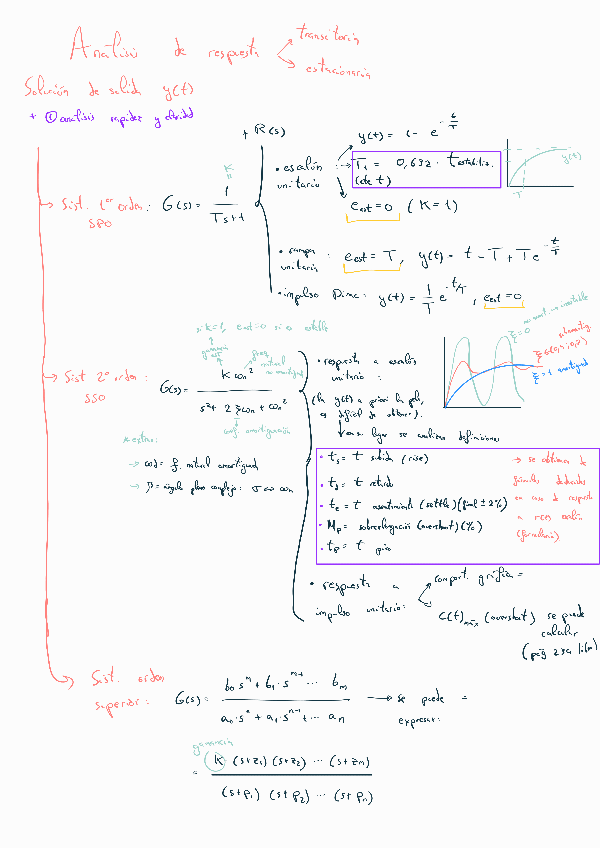 Análisis de respuesta
transitoria
estacionaria
Solución de salida y(t)
+ ① análisis rapidez y
+ R(s)
Sist. 1er orden: SPO
G(s) = K = 1 / Ts+1
• escalón unitario
y(t) = 1 - e^-t/T
T1 = 0,632 · t estabiliz.
(de t)
e est = 0 (K=1)
y(t)
T
• rampa unitaria:
e est = T, y(t) = t - T + Te^-t/T
• impulso Dirac: y(t) = 1/T e^-t/T, e est = 0
si K=1, e est = 0 si o estable
ganancia est
freq natural no amortiguad
Sist 2º orden: SSO
G(s) = K ωn² / s² + 2ξωn + ωn²
coef amortiguación
• respuesta a escalón unitario:
(la y(t) a priori la pide, es difícil de obtener).
en su lugar se analizan definiciones
ξ=0
ξ=1 amortiguad
x extras:
→ ωd = f. natural amortiguad
→ β = ángulo plano complejo: σ ωn
• ts = t subida (rise)
• td = t retardo
• te = t asentamiento (settle) (final ± 2%)
• Mp = sobreelongación (overshoot) (%)
• tp = t pico
→ se obtienen de fórmulas deducidas en caso de respuesta a escalón
• respuesta a impulso unitario:
comport. gráfica =
C(t)máx (overshoot) se puede calcular
(pág 234 libro)
Sist. orden superior:
G(s) = b0·s^m + b1·s^m-1 ... bm / a0·s^n + a1·s^n-1 + ... an
→ se puede expresar: =
ganancia
= K (s+z1) (s+z2) ... (s+zm) / (s+p1) (s+p2) ... (s+pn)